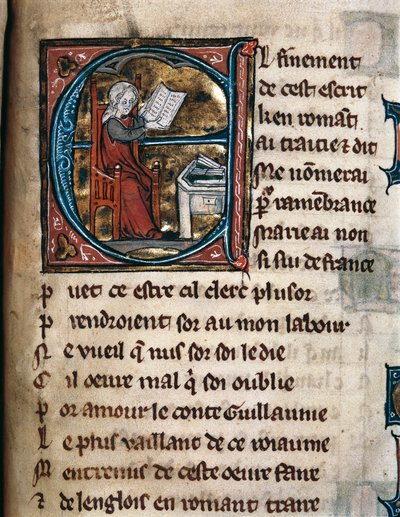 Al finement
de cest escrit
k'en romanz
ai traitie z dit
Me nōmerai
p̱ ramenbrance
Marie ai non
si sui de france
Puet ce estre cil clerc plusor
Prendroient sor au mon labour
Ne vueil q̄ nus sor soi le die
Cil oeure mal q̄ soi oublie
Por amour le conte Guillaume
Le plus vaillant de ce roiaume
M entremis de ceste oeure faire
z de lenglois en romant traire